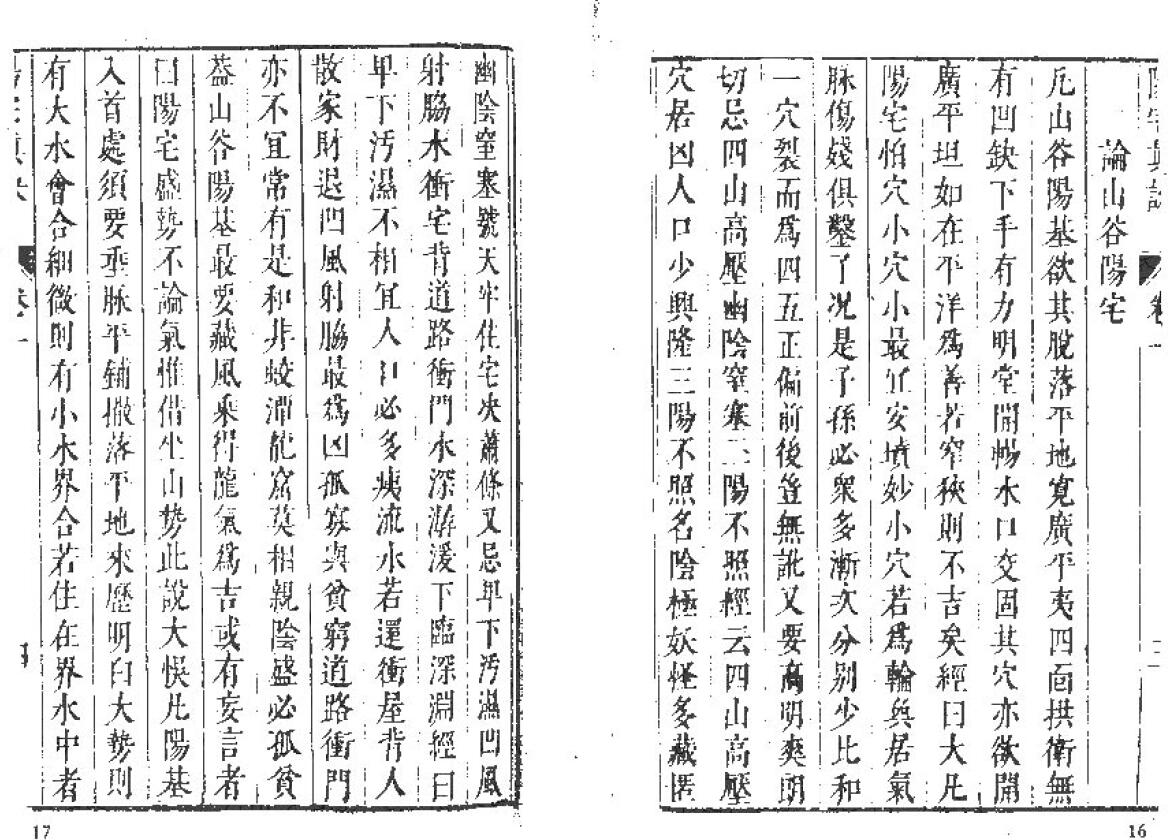 論山谷陽宅
凡山谷陽基欲其脫落平地寬廣平夷四面拱衛無
有凹缺下手有力明堂開暢水口交固其穴亦欲開
廣平坦如在平洋為善若窄狹則不吉矣經曰大凡
陽宅怕穴小穴小最宜安墳妙小穴若為輪與居氣
脉傷殘俱鑿了况是子孫必衆多漸次分別少比和
一穴裂而為四五正偏前後豈無訛又要高明爽朗
切忌四山高壓幽陰窒塞三陽不照經云四山高壓
穴居凶人口少興隆三陽不照名陰極妖怪多藏匿
16
幽陰窒塞號天牢住宅决蕭條又忌卑下污濕凹風
射脇水衝宅背道路衝門水深潺湲下臨深淵經曰
卑下污濕不相宜人口必多痍流水若還衝屋背人
散家財退凹風射脇最為凶孤寡與貧窮道路衝門
亦不宜常有是和非蛟潭龍窟莫相親陰盛必孤貧
葢山谷陽基最要藏風乘得龍氣為吉或有妄言者
曰陽宅盛勢不論氣惟借坐山勢此說大悞凡陽基
入首處須要垂脉平鋪撒落平地來歷明白大勢則
有大水會合細微則有小水界合若住在界水中者
卷一
四
17